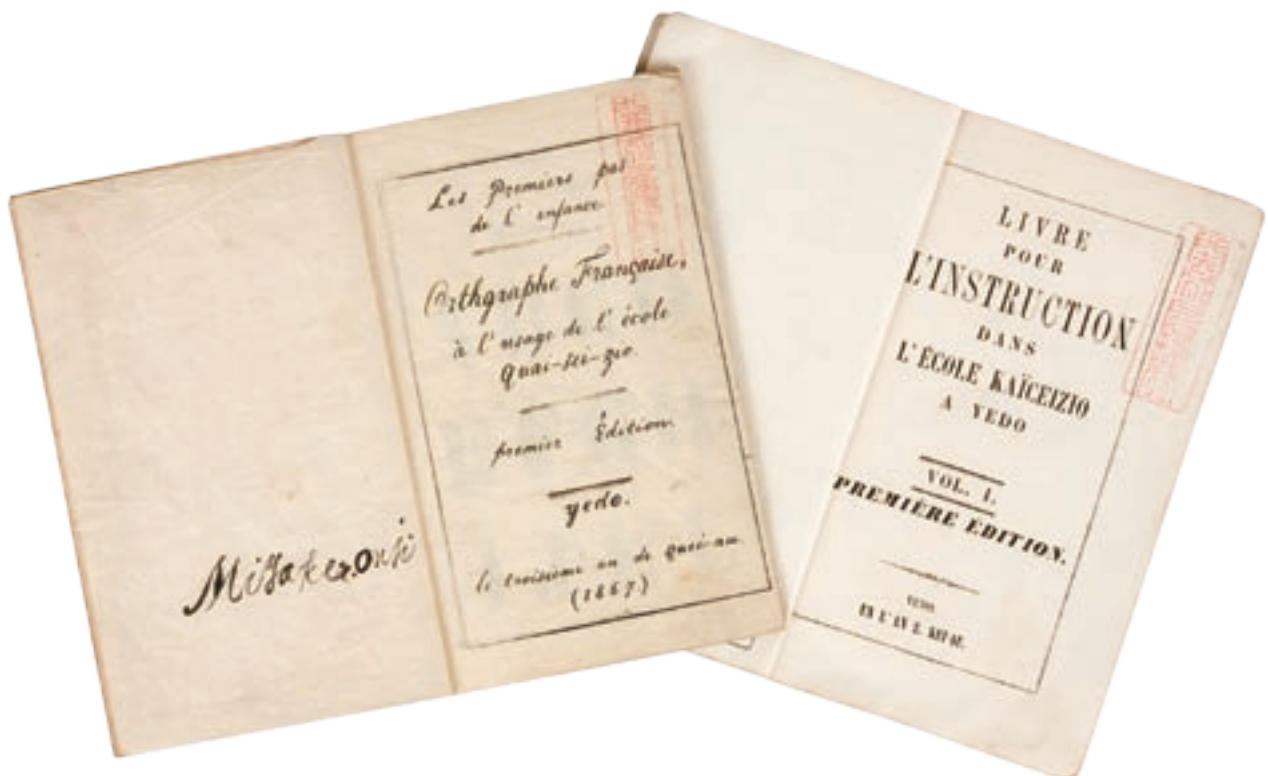 Les Premiers pas
de l'enfance
Orthgraphe Française,
à l'usage de l'école
Quai-sei-zio.
premier Édition.
yedo.
le troisième an de quei-au
(1867)
LIVRE
POUR
L'INSTRUCTION
DANS
L'ÉCOLE KAÏCEIZIO
A YEDO
VOL. I.
PREMIÈRE EDITION.
YEDO